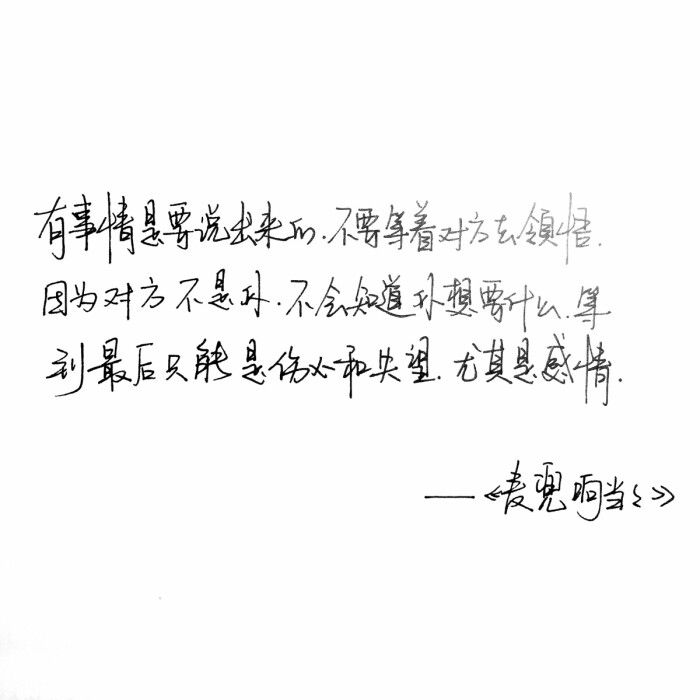 有事情是要说出来的.不要等着对方去领悟.
因为对方不是你.不会知道你想要什么.等
到最后只能是伤心和失望.尤其是感情.
——《麦兜响当当》